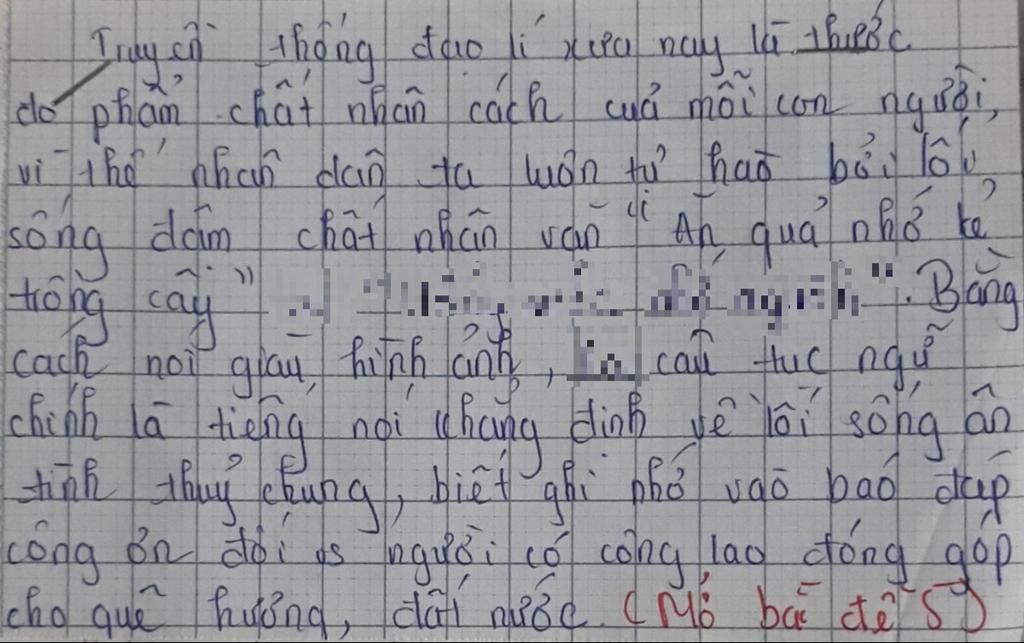 Truyền thống đạo lí xưa nay là thước
đo phẩm chất nhân cách của mỗi con người,
vì thế nhân dân ta luôn tự hào bởi lối
sống đậm chất nhân văn "Ăn quả nhớ kẻ
trồng cây" ". Bằng
cách nói giàu hình ảnh, câu tục ngữ
chính là tiếng nói khẳng định về lối sống ân
tình thủy chung, biết ghi nhớ vào báo đáp
công ơn đối vs người có công lao đóng góp
cho quê hương, đất nước. (Mở bài đề 5)